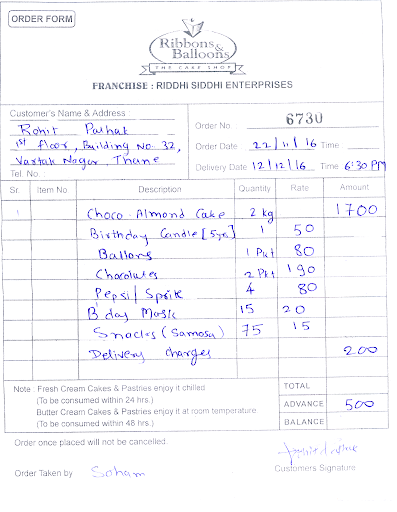 ORDER FORM
Ribbons &
Balloons
THE CAKE SHOP
FRANCHISE : RIDDHI SIDDHI ENTERPRISES
Customer's Name & Address :
Rohit Pathak
1st floor, Building No. 32,
Vartak Nagar, Thane
Tel. No.
Order No. 6730
Order Date 22/11/16 Time
Delivery Date 12/12/16 Time 6:30 PM
Sr. Item No Description Quantity Rate Amount
1 Choco Almond Cake 2 kg 1700
Birthday Candle [5yr] 1 50
Ballons 1 Pkt 80
Chocolates 2 Pkt 190
Pepsi / Sprit 4 80
B'day Mask 15 20
Snacks (Samosa) 75 15
Delivery charges 200
Note : Fresh Cream Cakes & Pastries enjoy it chilled
(To be consumed within 24 hrs.)
Butter Cream Cakes & Pastries enjoy it at room temperature
(To be consumed within 48 hrs.)
TOTAL
ADVANCE 500
BALANCE
Order once placed will not be cancelled.
Order Taken by Soham
Customers Signature